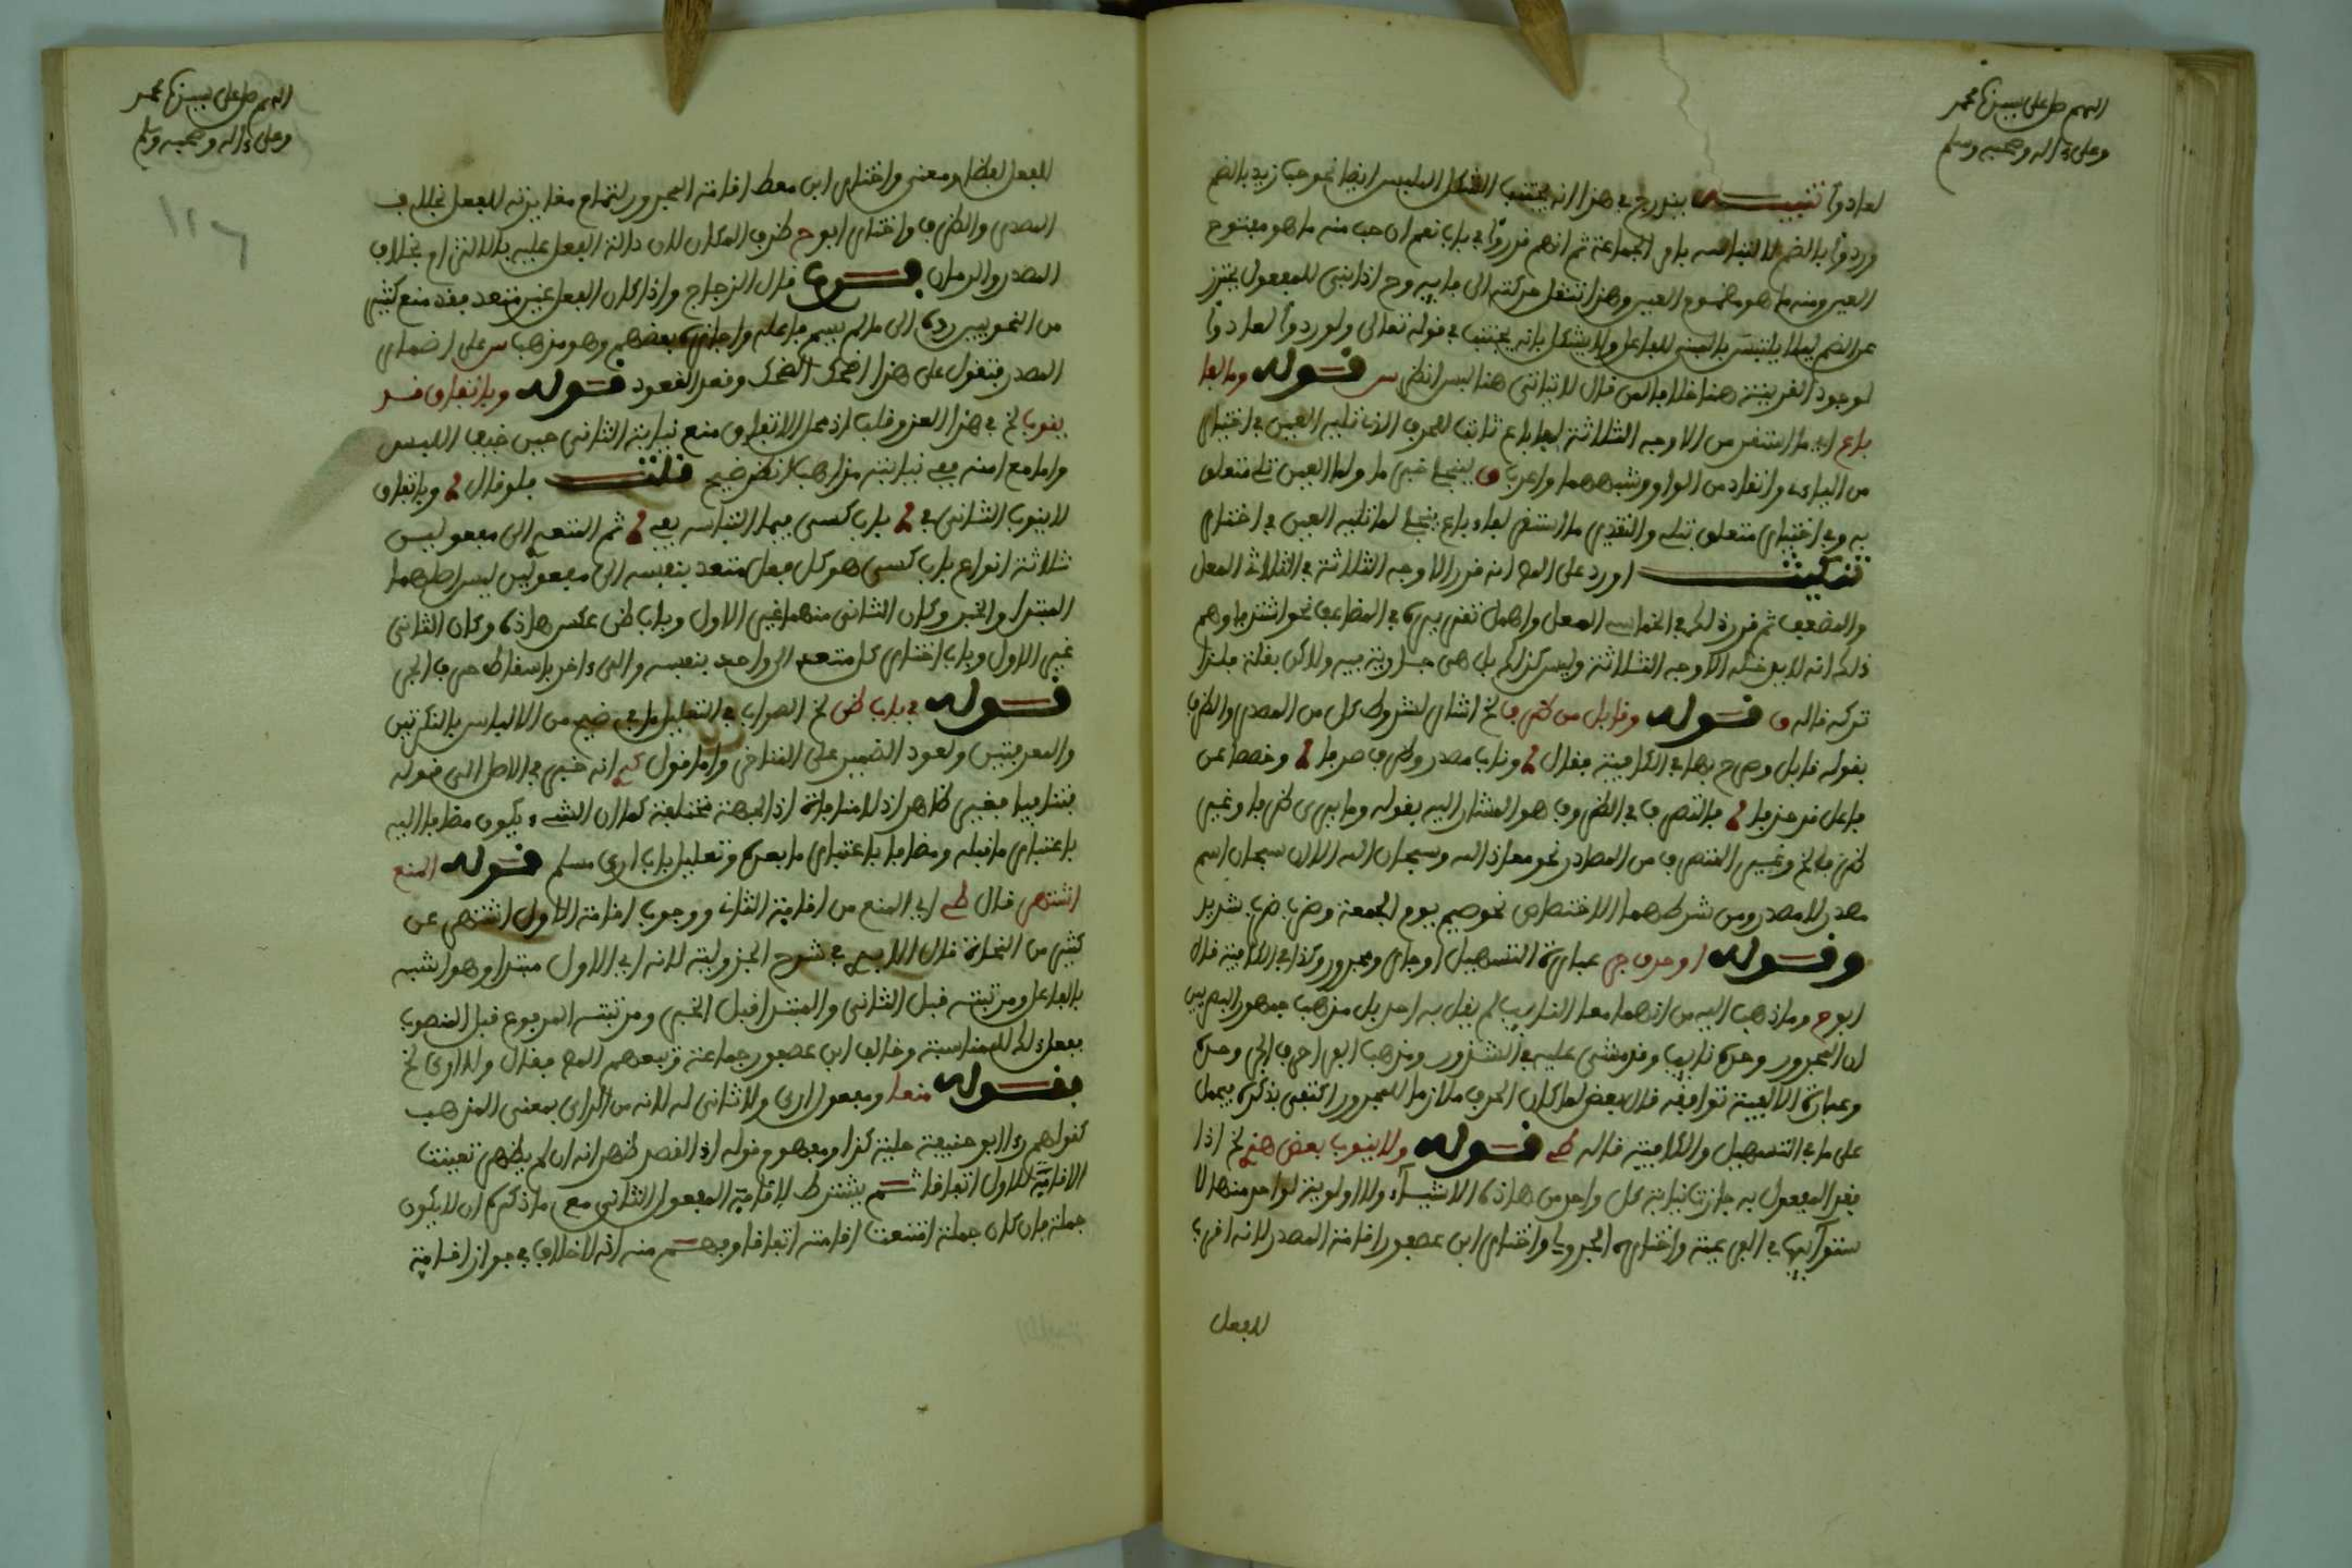 اللهم صل على سيدنا محمد
وعلى ءاله وصحبه وسلم
لعادوا تنبيه يندرج في هذا انه يجتنب الشكل الملبس ايضا نحو حب زيد بالضم
وردوا بالضم لالتباسه بامر الجماعة ثم انهم قرروا في باب نعم ان حب منه ما هو مفتوح
العين ومنه ما هو مضموم العين وهذا تنقل حركته الى فايه وح اذا بني للمفعول يحترز
عن الضم ليلا يلتبس بالمبني للفاعل ولا يشكل بانه يجتنب في قوله تعالى ولو ردوا لعادوا
لوجود القرينة هنا خلافا لمن قال لا يتاتى هنا لبس انظر س قوله وما لفا
باع اي ما استقر من الاوجه الثلاثة لفا باع ثابت للحرف الذي تليه العين في اختار
من الياء وانقاد من الواو وشبههما واعرب ق ينجلي خبر ما ولما العين تلي متعلق
به وفي اختار متعلق بتلي والتقدير ما استقر لفاء باع ينجلي لما تليه العين في اختار
تنكيت اورد على المص انه قرر الاوجه الثلاثة في الثلاث المعل
والمضعف ثم قرر ذلك في الخماسي المعل واهمل تقريره في المضاعف نحو اشتد فاوهم
ذلك انه لا يدخله الاوجه الثلاثة وليس كذلك بل هي جارية فيه ولاكن بقلة فلذا
تركه قاله ق قوله وقابل من ظرف لخ اشار لشروط كل من المصدر والظرف
بقوله قابل وصرح بها في الكافية فقال وناب مصدر وظرف صرفا وخصصا عن
فاعل قد حذفا فالتصرف في الظروف هو المشار اليه بقوله وما يرى ظرفا وغير
ظرف لخ وغير المتصرف من المصادر نحو معاذ الله وسبحان الله لان سبحان اسم
مصدر لا مصدر ومن شرطهما الاختصاص نحو صيم يوم الجمعة وضرب ضرب شديد
وقوله او حرف جر عبارة التسهيل او جار ومجرور وكذا في الكافية قال
ابو ح وما ذهب اليه من انهما معا النايب لم يقل به احد بل مذهب جمهور البصريين
ان المجرور وحده نايب وقد مشى عليه في الشذور ومذهب الفراء حرف الجر وحده
وعبارة الالفية توافقه قال بعض لما كان الحرف ملازما للمجرور اكتفى بذكره فيحمل
على ما في التسهيل والكافية قاله ط قوله ولا ينوب بعض هذي لخ اذا
فقد المفعول به جازت نيابة كل واحد من هاذه الاشياء ولا اولوية لواحد منها لا
ستوائها في الفرعية واختاره الجزولي واختار ابن عصفور اقامة المصدر لانه اقرب
للفعل
اللهم صل على سيدنا محمد
وعلى ءاله وصحبه وسلم
١٢٦
للفعل لفظا ومعنى واختار ابن معط اقامة المجرور لتمام مغايرته للفعل بخلاف
المصدر والظرف واختار ابو ح ظرف المكان لان دلالة الفعل عليه بالالتزام بخلاف
المصدر والزمان قال الزجاج واذا كان الفعل غير متعد فقد منع كثير
من النحويين رده الى ما لم يسم فاعله واجازه بعضهم وهو مذهب س على اضمار
المصدر فتقول على هذا ضحك الضحك وقعد القعود قوله وباتفاق قد
ينوب لخ في هذا العزو قلب اذ محل الاتفاق منع نيابة الثاني حين خيف اللبس
واما مع امنه ففي نيابته مذاهب انظر ضيح قلت فلو قال وباتفاق
لا ينوب الثاني في باب كسى فيما التباسه يفي ثم المتعدي الى مفعولين
ثلاثة انواع باب كسى هو كل فعل متعد بنفسه الى مفعولين ليس اصلهما
المبتدا والخبر وكان الثاني منهما غير الاول وباب ظن عكس هاذه وكان الثاني
غير الاول وباب اختار كل متعد الى واحد بنفسه والى ءاخر باسقاط حرف الجر
قوله في باب ظن لخ الصواب في التعليل ما في ضيح من الالباس بالنكرتين
والمعرفتين ولعود الضمير على المتاخر واما قول انه خبر في الاصل الى قوله
فتنافيا فغير ظاهر اذ لا منافاة اذ الجهة مختلفة كما ان الشيء يكون مضافا اليه
باعتبار ما قبله ومضافا باعتبار ما بعده وتعليل باب ارى مسلم قوله المنع
اشتهر قال ط اي المنع من اقامة الثاني ووجوب اقامة الاول اشتهر عن
كثير من النحاة قال الابذي في شرح الجزولية لانه اي الاول مبتدا وهو اشبه
بالفاعل ومرتبته قبل الثاني والمبتدا قبل الخبر ومرتبته المرفوع قبل المنصوب
ففعل ذلك للمناسبة وخالف ابن عصفور جماعة وتبعهم المص فقال ولا ارى لخ
فقوله منعا ومفعول ارى ولا ثاني له لانه من الراي بمعنى المذهب
كقولهم رءا ابو حنيفة حلية كذا ومفهوم قوله اذا القصد ظهر انه ان لم يظهر تعينت
الاقامة للاول اتفاقا ثم يشترط لاقامة المفعول الثاني مع ما ذكره ان لا يكون
جملة فان كان جملة امتنعت اقامته اتفاقا وفهم منه انه لا خلاف في جواز اقامة